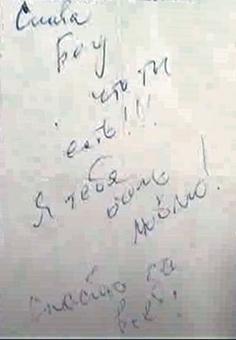 Слава
Богу
что ты
есть!!!
Я тебя
люблю!
Спасибо за
всё!